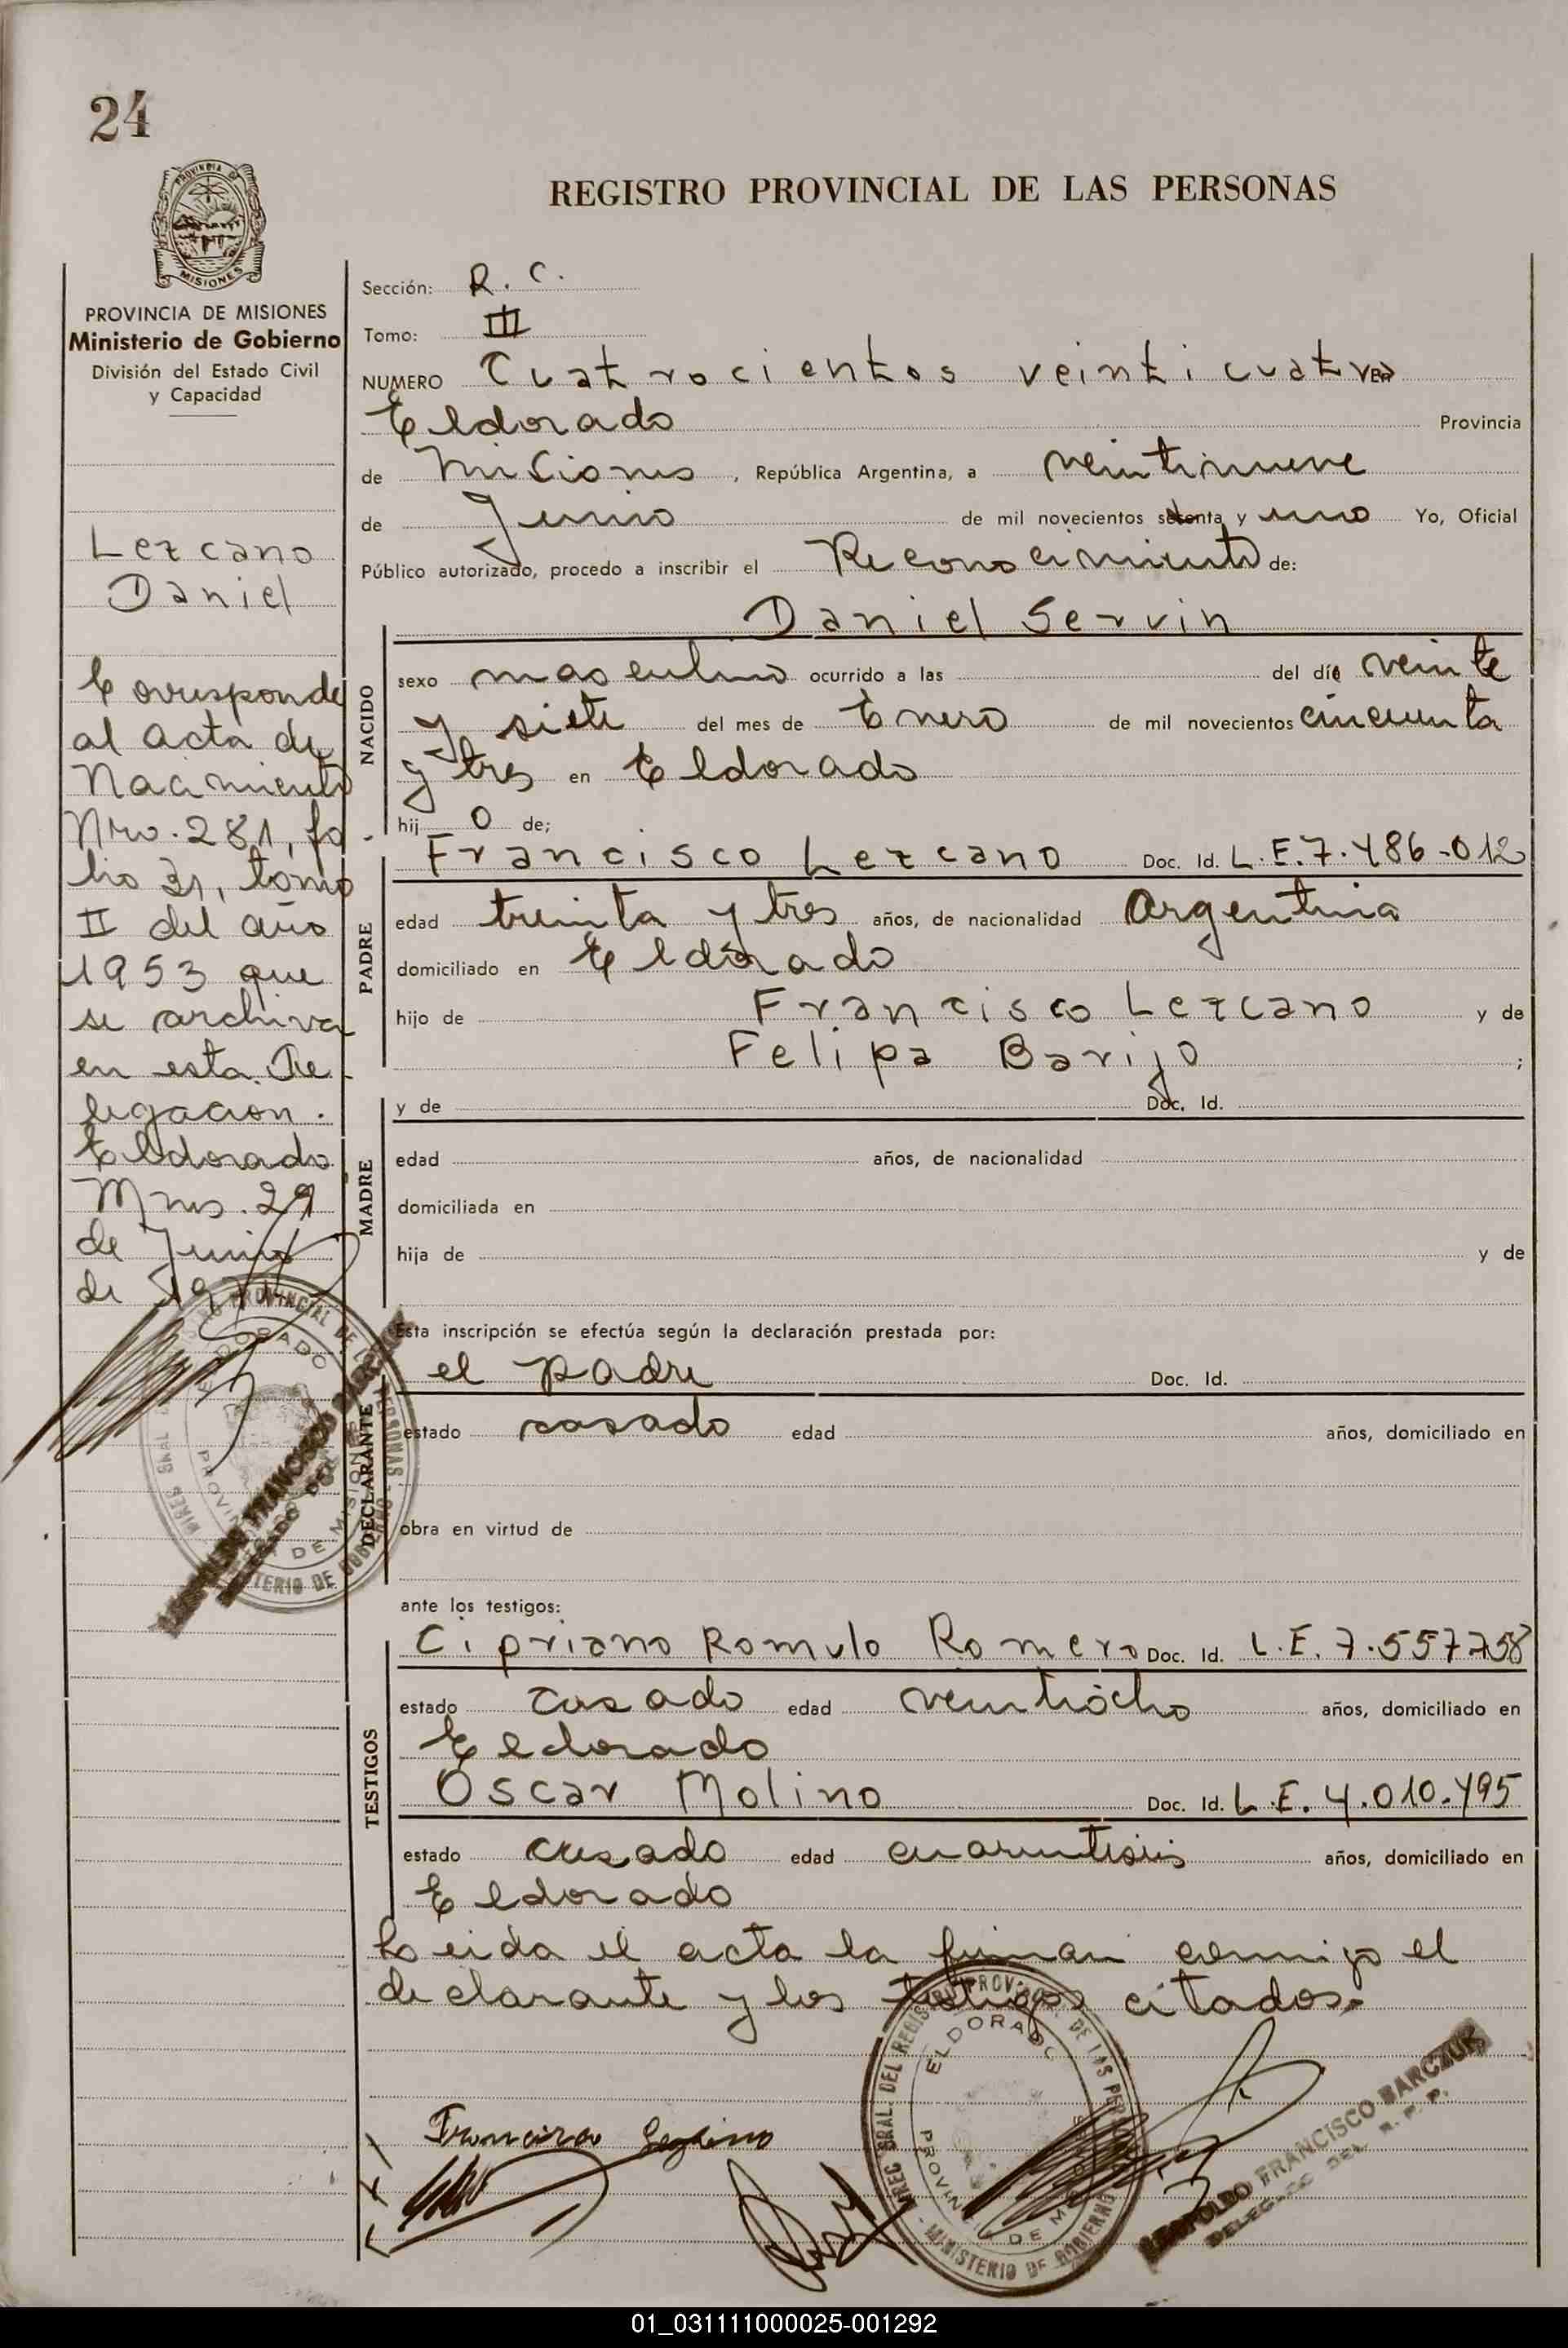 24
PROVINCIA DE
MISIONES
REGISTRO PROVINCIAL DE LAS PERSONAS
PROVINCIA DE MISIONES
Ministerio de Gobierno
División del Estado Civil
y Capacidad
Lezcano
Daniel
Corresponde
al acta de
Nacimiento
Nro. 281, fo-
lio 31, tomo
II del año
1953 que
se archiva
en esta De-
legacion.
Eldorado
Mnes. 29
de Junio
de 1971
Sección: R. C.
Tomo: III
NUMERO Cuatrocientos veinticuatro EN
Eldorado Provincia
de Misiones, República Argentina, a veintinueve
de Junio de mil novecientos setenta y uno Yo, Oficial
Público autorizado, procedo a inscribir el Reconocimiento de:
NACIDO
Daniel Servin
sexo masculino ocurrido a las del día veinte
y siete del mes de Enero de mil novecientos cincuenta
y tres en Eldorado
hij o de;
PADRE
Francisco Lezcano Doc. Id. L.E. 7.486-012
edad treinta y tres años, de nacionalidad Argentina
domiciliado en Eldorado
hijo de Francisco Lezcano y de
Felipa Barijo ;
MADRE
y de Doc. Id.
edad años, de nacionalidad
domiciliada en
hija de y de
Esta inscripción se efectúa según la declaración prestada por:
DECLARANTE
el padre Doc. Id.
estado casado edad años, domiciliado en
obra en virtud de
ante los testigos:
TESTIGOS
Cipriano Romulo Romero Doc. Id. L.E. 7.557.758
estado casado edad veintiocho años, domiciliado en
Eldorado
Oscar Molino Doc. Id. L.E. 4.010.495
estado casado edad cuarentiseis años, domiciliado en
Eldorado
Leida el acta la firman conmigo el
declarante y los testigos citados.
Francisco Lezcano
ELDORADO
MINISTERIO DE GOBIERNO
LEOPOLDO FRANCISCO BARCZUK
DELEGADO DEL R. P. P.
01_031111000025-001292